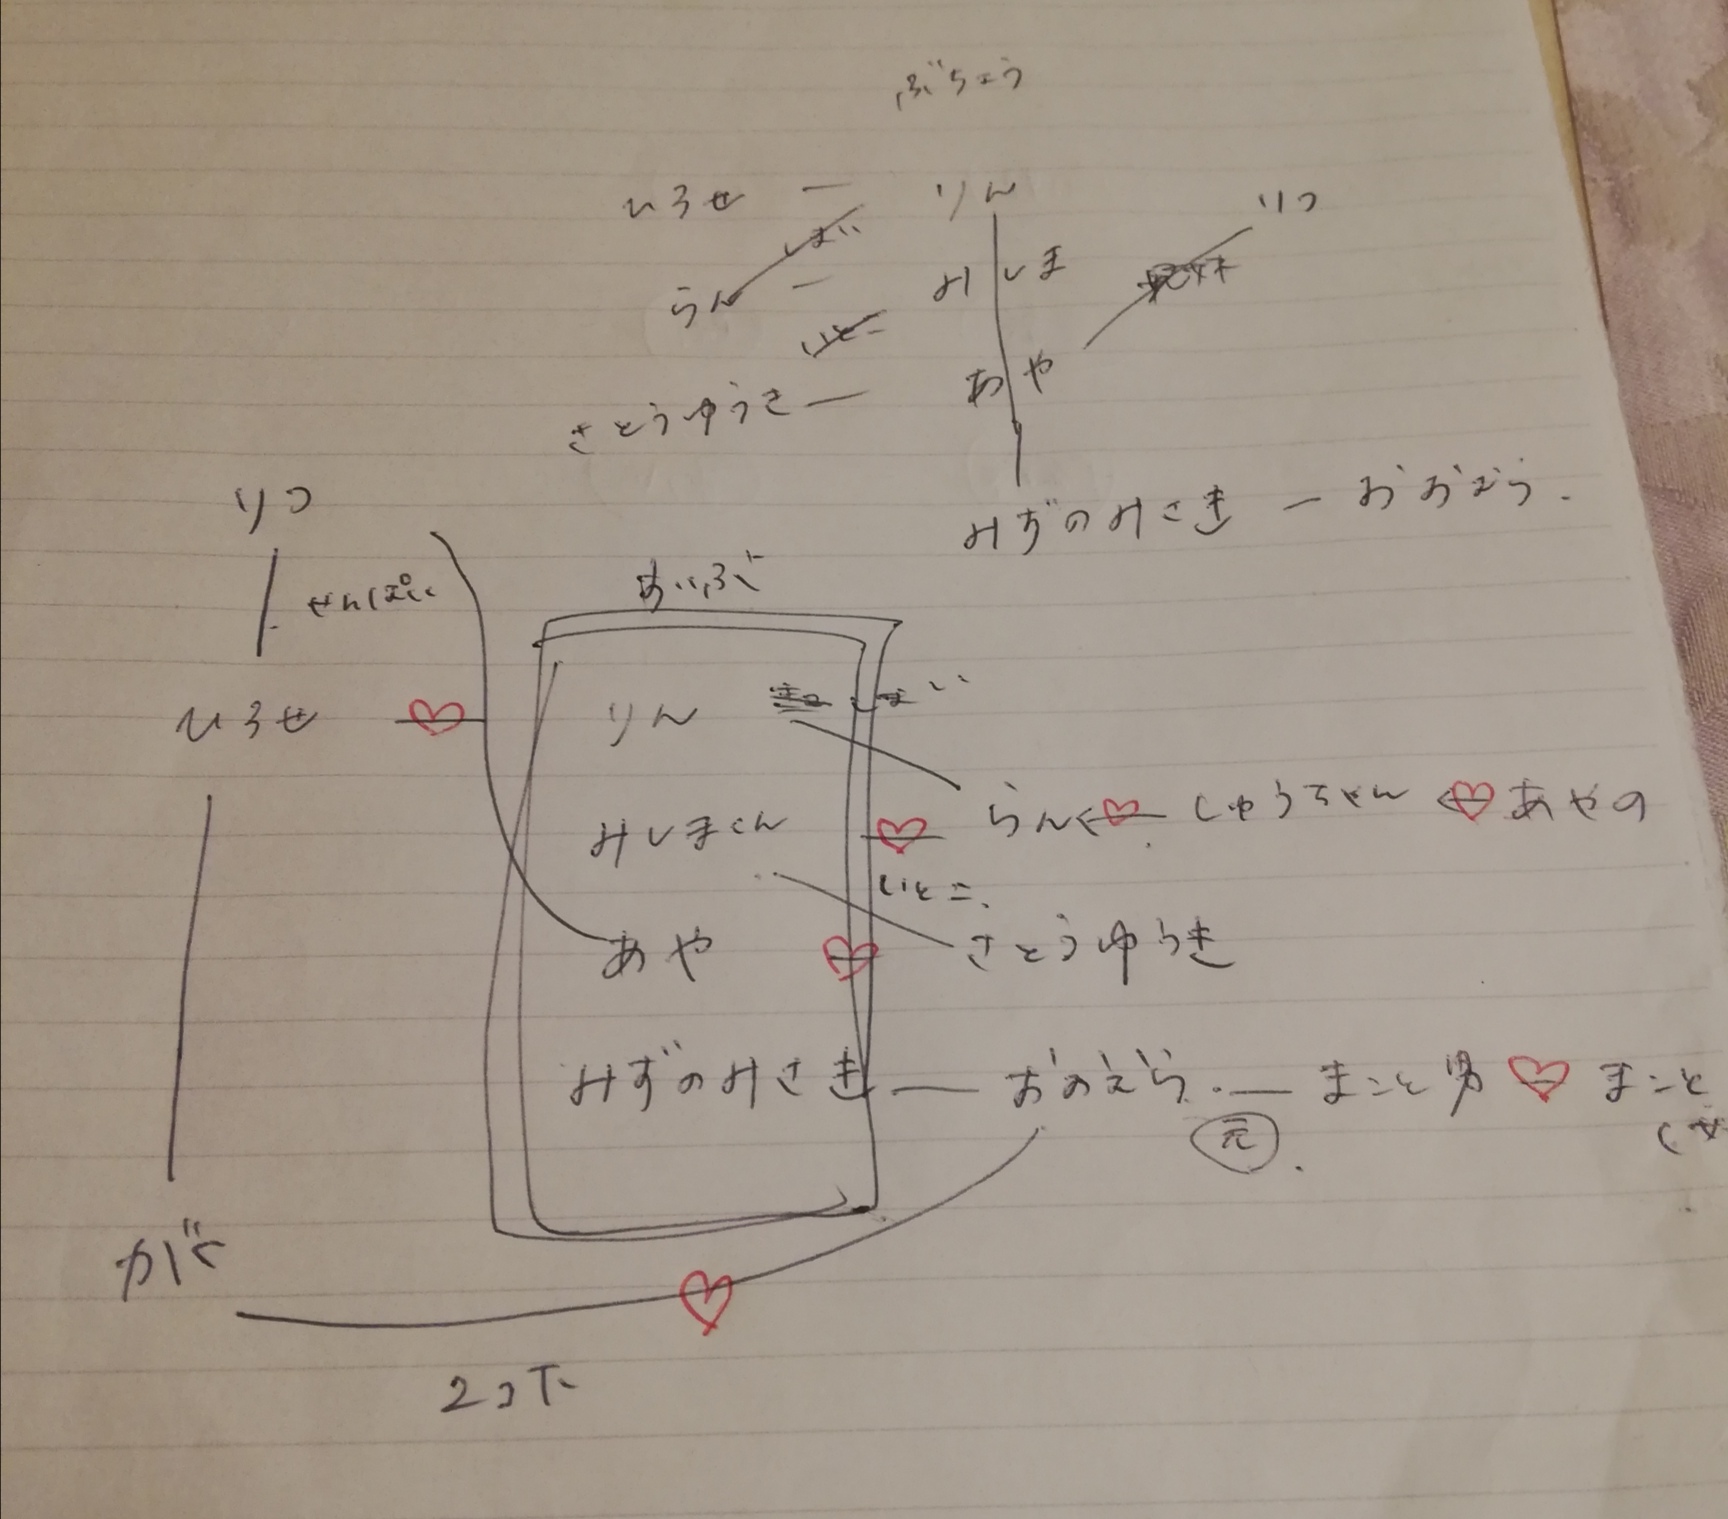 ぶちょう
ひろせ ー りん リコ
しまい
らん ー みしま
いとこ
さとうゆうき ー あや
みずのみさき ー
リコ
せんぱい
すいぶ
ひろせ りん しまい
みしまくん らん しゅうちゃん あやの
いとこ
あや さとうゆうき
みずのみさき まこと男 まこと
元
2コ下